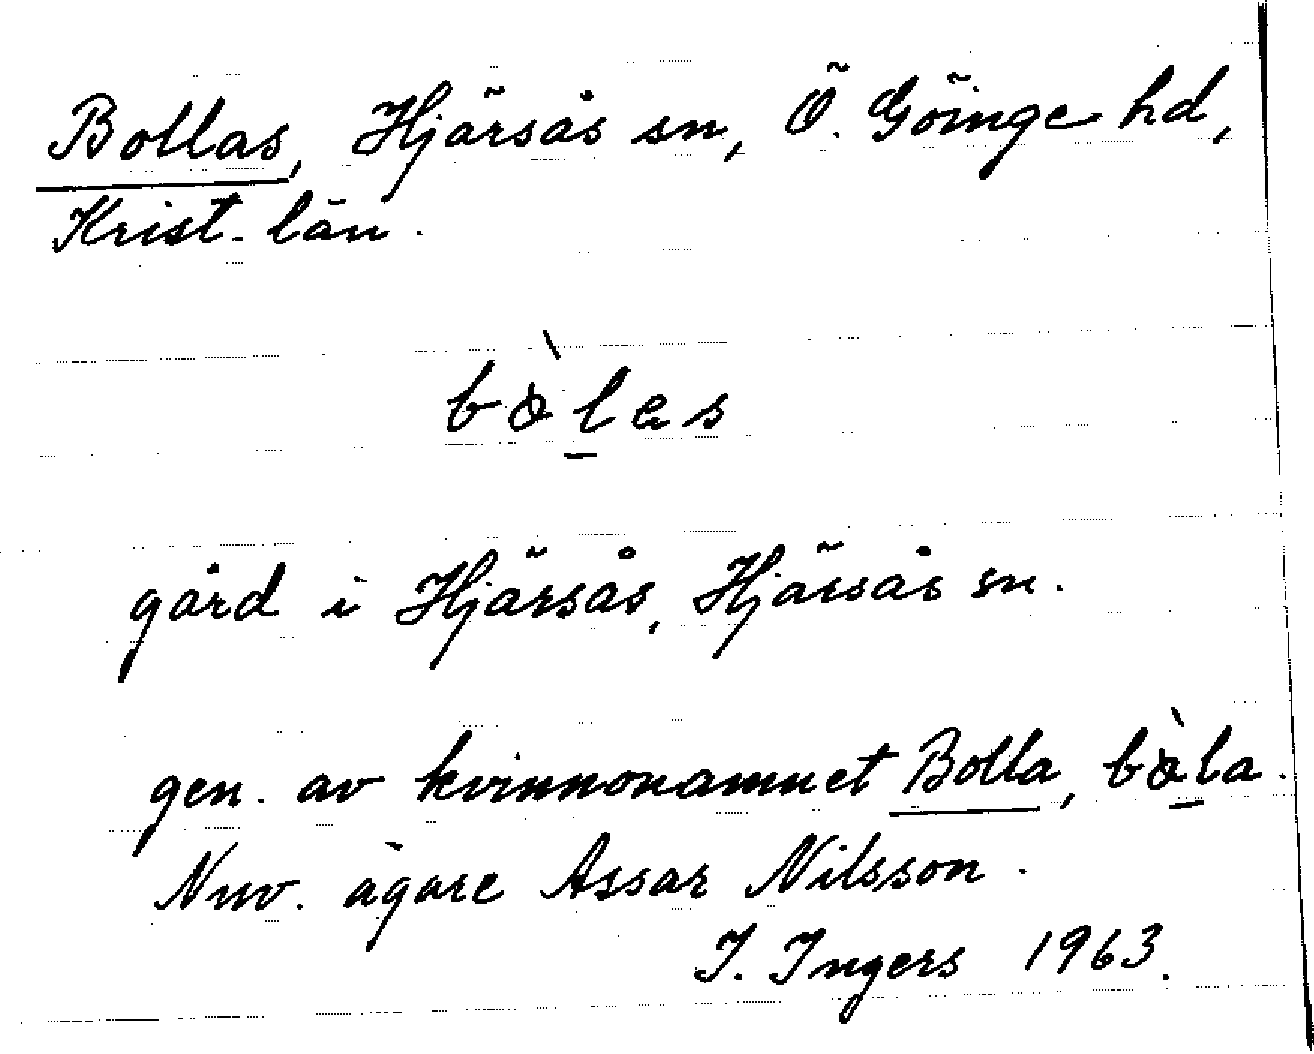 Bollas, Hjärsås sn, Ö. Göinge hd,
Krist. län.
bòl̠as
gård i Hjärsås, Hjärsås sn.
gen. av kvinnonamnet Bolla, bòl̠a.
Nuv. ägare Assar Nilsson.
I. Ingers 1963.